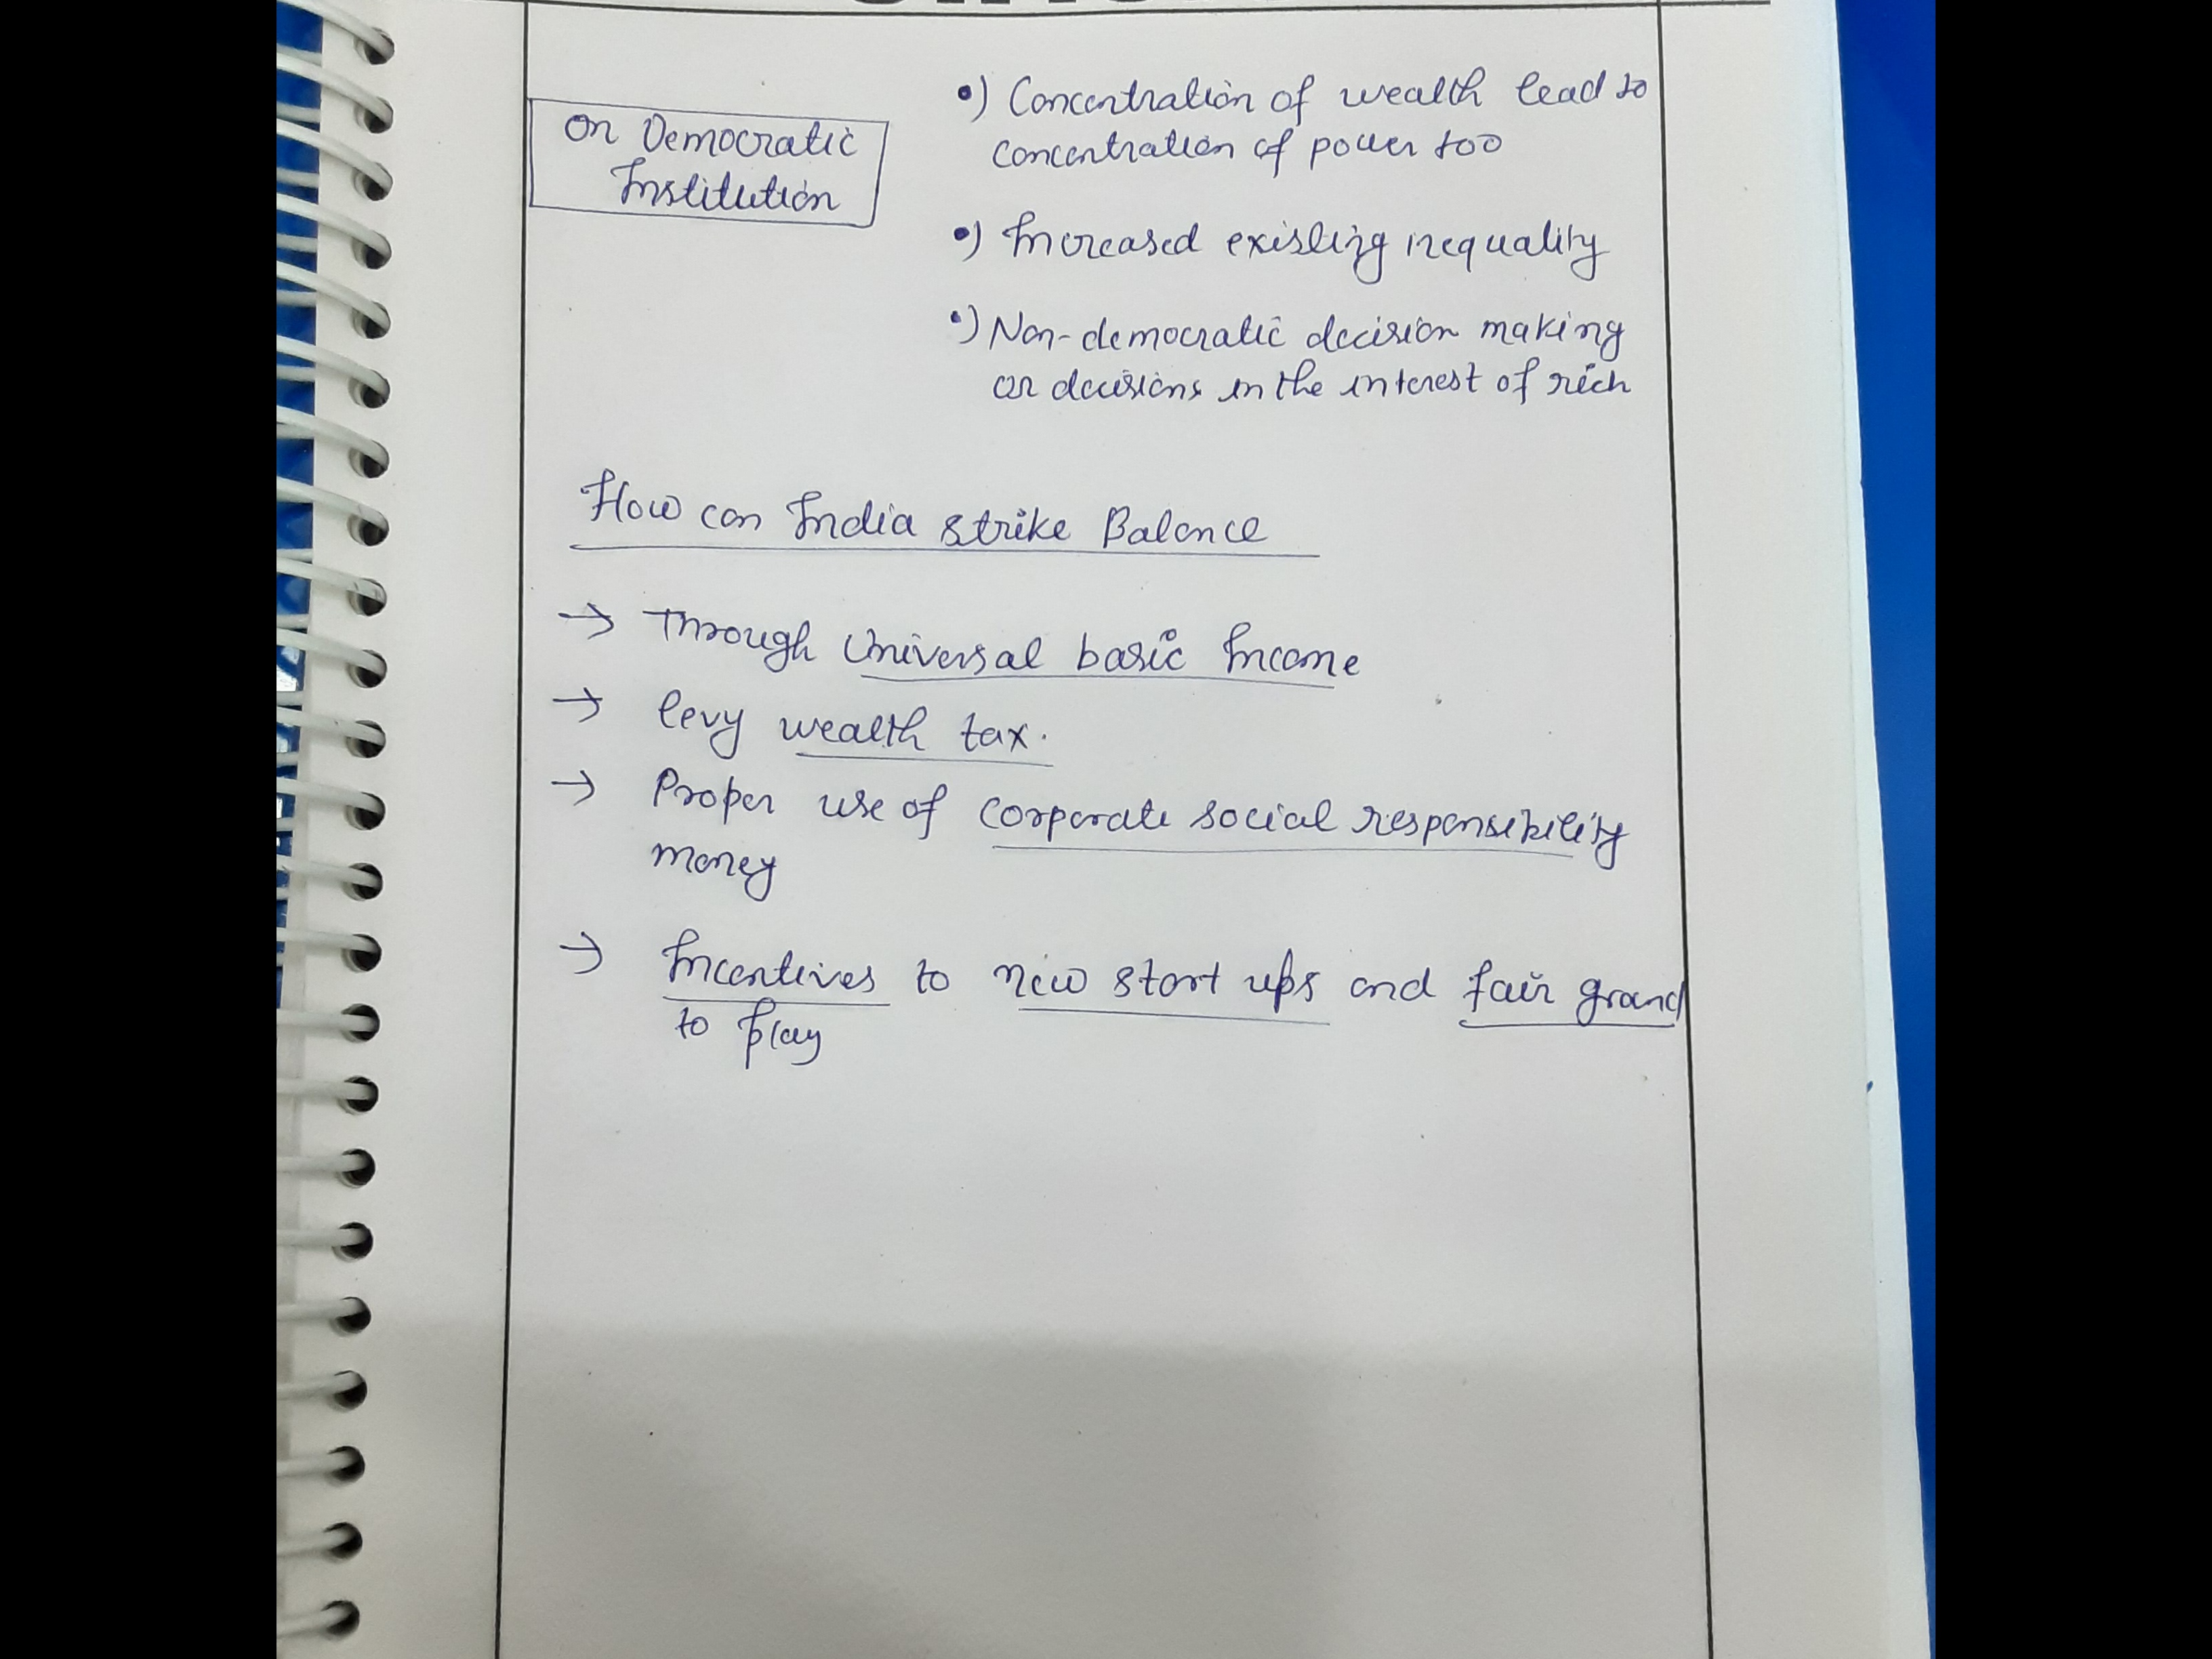 On Democratic
Institution
•) Concentration of wealth lead to
concentration of power too
•) Increased existing inequality
•) Non-democratic decision making
or decisions in the interest of rich
How can India strike Balance
→ Through Universal basic Income
→ levy wealth tax.
→ Proper use of corporate social responsibility
money
→ Incentives to new start ups and fair grand
to play